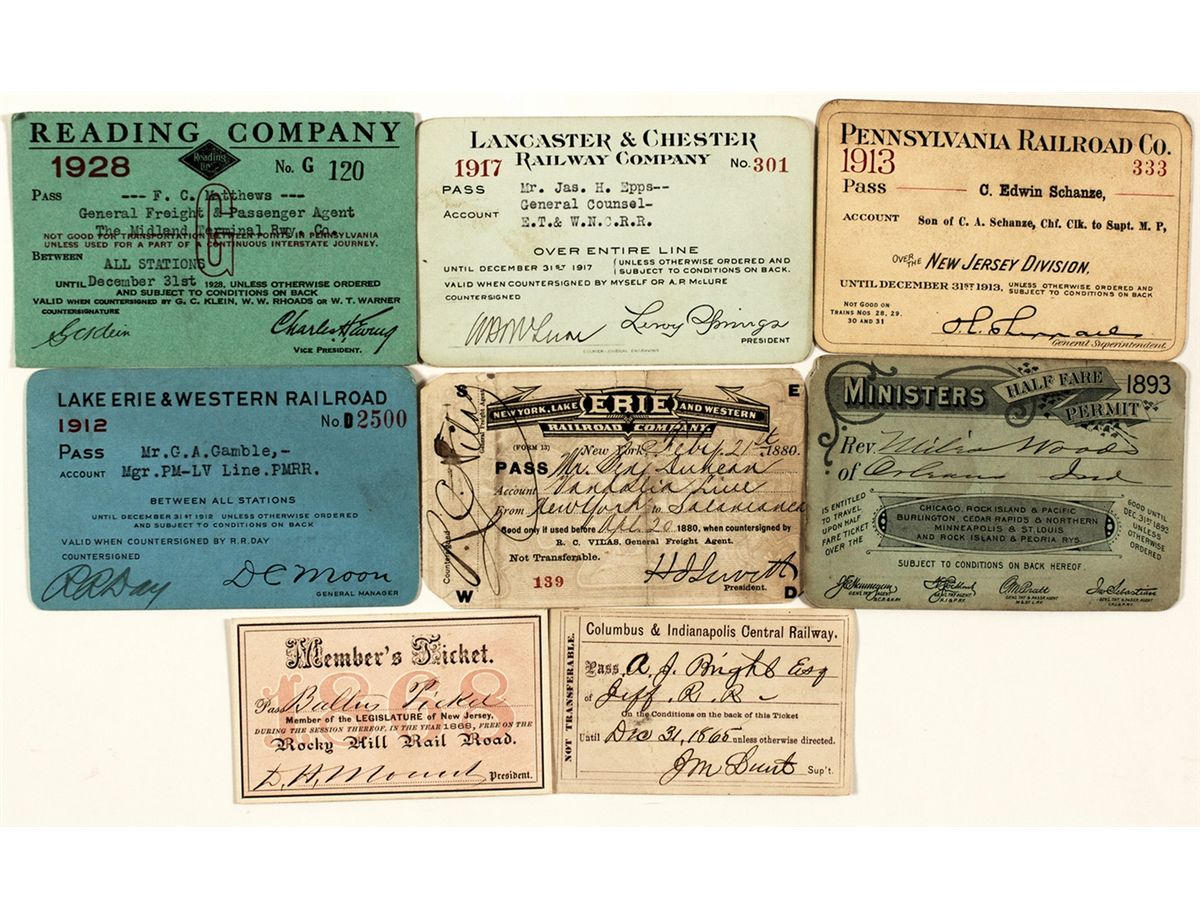 READING COMPANY
1928 Reading Lines No. G 120
PASS --- F. C. Matthews ---
General Freight & Passenger Agent
The Midland Terminal Rwy. Co.
NOT GOOD FOR TRANSPORTATION BETWEEN POINTS IN PENNSYLVANIA
UNLESS USED FOR A PART OF A CONTINUOUS INTERSTATE JOURNEY.
BETWEEN ALL STATIONS
UNTIL December 31st 1928, UNLESS OTHERWISE ORDERED
AND SUBJECT TO CONDITIONS ON BACK
VALID WHEN COUNTERSIGNED BY G. C. KLEIN, W. W. RHOADS OR W. T. WARNER
COUNTERSIGNATURE
G C Klein Charles H. Ewing
VICE PRESIDENT.
LANCASTER & CHESTER
RAILWAY COMPANY
1917 No. 301
PASS Mr. Jas. H. Epps--
ACCOUNT General Counsel-
E.T.& W.N.C.R.R.
OVER ENTIRE LINE
UNTIL DECEMBER 31ST 1917 UNLESS OTHERWISE ORDERED AND
SUBJECT TO CONDITIONS ON BACK.
VALID WHEN COUNTERSIGNED BY MYSELF OR A.P. McLURE
COUNTERSIGNED
Leroy Springs
PRESIDENT
PENNSYLVANIA RAILROAD CO.
1913 333
PASS C. Edwin Schanze,
ACCOUNT Son of C. A. Schanze, Chf. Clk. to Supt. M. P,
OVER THE NEW JERSEY DIVISION.
UNTIL DECEMBER 31ST 1913. UNLESS OTHERWISE ORDERED AND
SUBJECT TO CONDITIONS ON BACK
NOT GOOD ON
TRAINS NOS 28, 29.
30 AND 31
General Superintendent.
LAKE ERIE & WESTERN RAILROAD
1912 No. D 2500
PASS Mr.G.A.Gamble,-
ACCOUNT Mgr.PM-LV Line.PMRR.
BETWEEN ALL STATIONS
UNTIL DECEMBER 31ST 1912 UNLESS OTHERWISE ORDERED
AND SUBJECT TO CONDITIONS ON BACK
VALID WHEN COUNTERSIGNED BY R.R.DAY
COUNTERSIGNED
R R Day D C Moon
GENERAL MANAGER
S E
NEW YORK, LAKE ERIE AND WESTERN
RAILROAD COMPANY.
(FORM 13) New York, Feby. 21st 1880.
PASS Mr. Duncan
Account Vandalia Line
From New York to Salamanca
Good only if used before Dec. 20 1880, when countersigned by
R. C. VILAS, General Freight Agent.
Not Transferable.
139 H J Jewett
President.
W D
Countersigned R. C. Vilas General Freight Agent
MINISTERS HALF FARE PERMIT 1893
Rev. Woods
of Orleans Ind
IS ENTITLED
TO TRAVEL
UPON HALF
FARE TICKET
OVER THE
CHICAGO, ROCK ISLAND & PACIFIC
BURLINGTON, CEDAR RAPIDS & NORTHERN
MINNEAPOLIS & ST. LOUIS
AND ROCK ISLAND & PEORIA RYS.
GOOD UNTIL
DEC. 31ST 1893
UNLESS
OTHERWISE
ORDERED
SUBJECT TO CONDITIONS ON BACK HEREOF.
Jno Sebastian
Member's Ticket.
1868
Pass Baltus Pickel
Member of the LEGISLATURE of New Jersey,
DURING THE SESSION THEREOF, IN THE YEAR 1868, FREE ON THE
Rocky Hill Rail Road.
D. H. Mount President.
NOT TRANSFERABLE.
Columbus & Indianapolis Central Railway.
Pass A. J. Bright Esq
of Jeff. R. R -
On the Conditions on the back of this Ticket
Until Dec 31, 1865 unless otherwise directed.
J M Lunt Sup't.